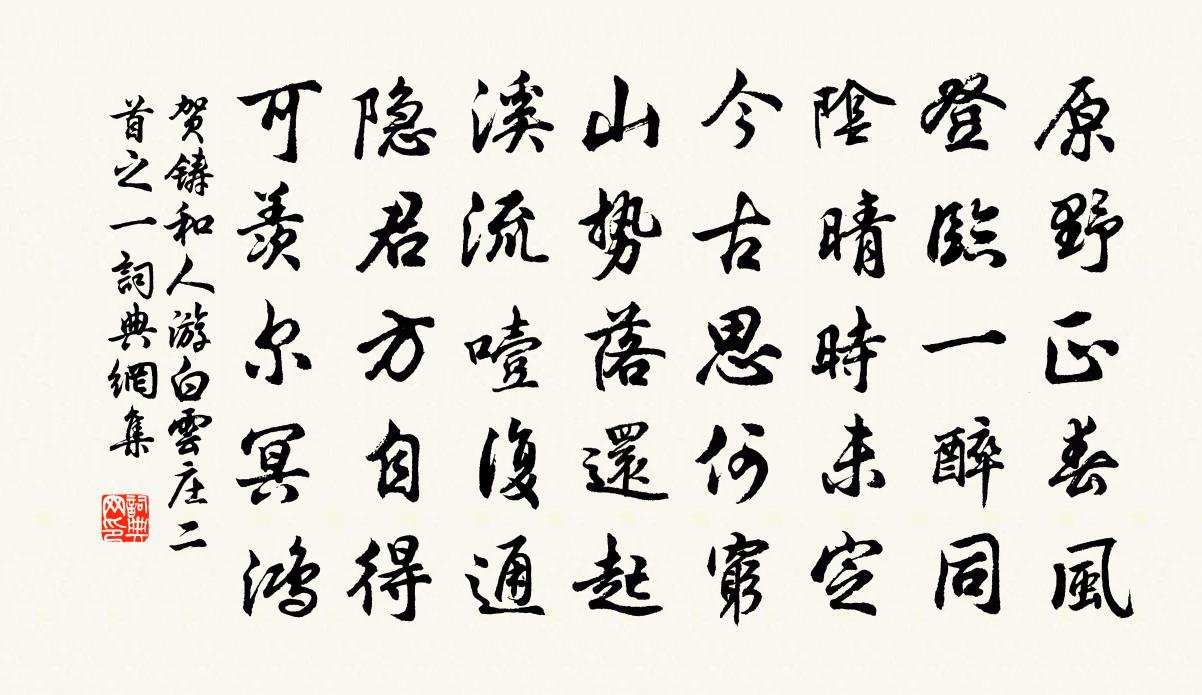 原野正春風
登臨一醉同
陰晴時未定
今古思何窮
山势落還起
溪流噎復通
隐君方自得
可羡尔冥鸿
贺鑄和人游白雲庄二
首之一詞典網集
詞典
网印